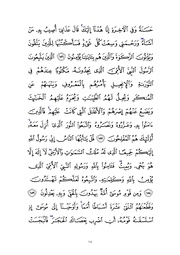 حَسَنَةً وَفِي ٱلْأَخِرَةِ إِنَّا هُدْنَآ إِلَيْكَ قَالَ عَذَابِيٓ أُصِيبُ بِهِۦ مَنْ
أَشَآءُ وَرَحْمَتِي وَسِعَتْ كُلَّ شَيْءٍ فَسَأَكْتُبُهَا لِلَّذِينَ يَتَّقُونَ
وَيُؤْتُونَ ٱلزَّكَوٰةَ وَٱلَّذِينَ هُم بِـَٔايَٰتِنَا يُؤْمِنُونَ ۝ ٱلَّذِينَ يَتَّبِعُونَ
ٱلرَّسُولَ ٱلنَّبِيَّ ٱلْأُمِّيَّ ٱلَّذِي يَجِدُونَهُۥ مَكْتُوبًا عِندَهُمْ فِي
ٱلتَّوْرَىٰةِ وَٱلْإِنجِيلِ يَأْمُرُهُم بِٱلْمَعْرُوفِ وَيَنْهَىٰهُمْ عَنِ
ٱلْمُنكَرِ وَيُحِلُّ لَهُمُ ٱلطَّيِّبَٰتِ وَيُحَرِّمُ عَلَيْهِمُ ٱلْخَبَٰٓئِثَ
وَيَضَعُ عَنْهُمْ إِصْرَهُمْ وَٱلْأَغْلَٰلَ ٱلَّتِي كَانَتْ عَلَيْهِمْ فَٱلَّذِينَ
ءَامَنُوا۟ بِهِۦ وَعَزَّرُوهُ وَنَصَرُوهُ وَٱتَّبَعُوا۟ ٱلنُّورَ ٱلَّذِيٓ أُنزِلَ مَعَهُۥٓ
أُو۟لَٰٓئِكَ هُمُ ٱلْمُفْلِحُونَ ۝ قُلْ يَٰٓأَيُّهَا ٱلنَّاسُ إِنِّي رَسُولُ ٱللَّهِ
إِلَيْكُمْ جَمِيعًا ٱلَّذِي لَهُۥ مُلْكُ ٱلسَّمَٰوَٰتِ وَٱلْأَرْضِ لَآ إِلَٰهَ إِلَّا
هُوَ يُحْيِۦ وَيُمِيتُ فَـَٔامِنُوا۟ بِٱللَّهِ وَرَسُولِهِ ٱلنَّبِيِّ ٱلْأُمِّيِّ ٱلَّذِي
يُؤْمِنُ بِٱللَّهِ وَكَلِمَٰتِهِۦ وَٱتَّبِعُوهُ لَعَلَّكُمْ تَهْتَدُونَ
۝ وَمِن قَوْمِ مُوسَىٰٓ أُمَّةٌ يَهْدُونَ بِٱلْحَقِّ وَبِهِۦ يَعْدِلُونَ ۝
وَقَطَّعْنَٰهُمُ ٱثْنَتَيْ عَشْرَةَ أَسْبَاطًا أُمَمًا وَأَوْحَيْنَآ إِلَىٰ مُوسَىٰٓ إِذِ
ٱسْتَسْقَىٰهُ قَوْمُهُۥٓ أَنِ ٱضْرِب بِّعَصَاكَ ٱلْحَجَرَ فَٱنۢبَجَسَتْ